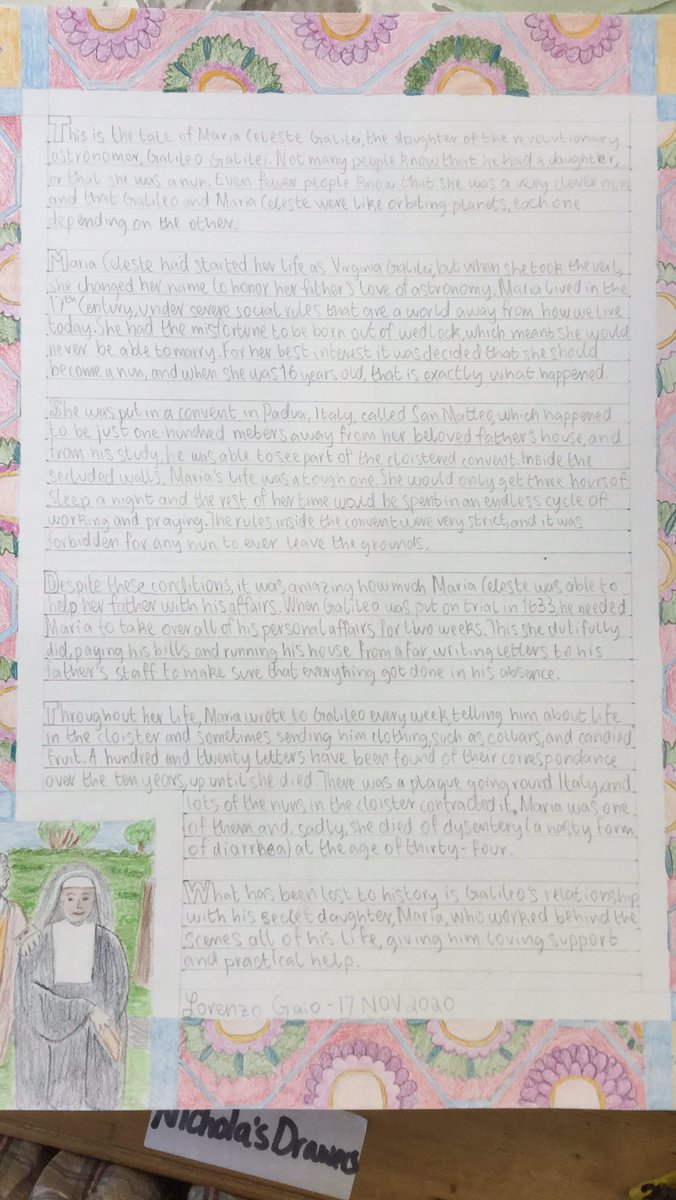 This is the tale of Maria Celeste Galilei, the daughter of the revolutionary
astronomer, Galileo Galilei. Not many people know that he had a daughter,
or that she was a nun. Even fewer people know that she was a very clever nun
and that Galileo and Maria Celeste were like orbiting planets, each one
depending on the other.
Maria Celeste had started her life as Virginia Galilei, but when she took the veil,
she changed her name to honor her father's love of astronomy. Maria lived in the
17th Century, under severe social rules that are a world away from how we live
today. She had the misfortune to be born out of wedlock, which meant she would
never be able to marry. For her best interest it was decided that she should
become a nun, and when she was 16 years old, that is exactly what happened.
She was put in a convent in Padua, Italy, called San Matteo, which happened
to be just one-hundred meters away from her beloved father's house, and
from his study, he was able to see part of the cloistered convent. Inside the
secluded walls, Maria's life was a tough one. She would only get three hours of
sleep a night and the rest of her time would be spent in an endless cycle of
working and praying. The rules inside the convent were very strict, and it was
forbidden for any nun to ever leave the grounds.
Despite these conditions, it was amazing how much Maria Celeste was able to
help her father with his affairs. When Galileo was put on trial in 1633, he needed
Maria to take over all of his personal affairs for two weeks. This she dutifully
did, paying his bills and running his house from afar, writing letters to his
father's staff to make sure that everything got done in his absence.
Throughout her life, Maria wrote to Galileo every week, telling him about life
in the cloister and sometimes sending him clothing, such as collars, and candied
fruit. A hundred and twenty letters have been found of their correspondance
over the ten years, up until she died. There was a plague going round Italy, and
lots of the nuns in the cloister contracted it. Maria was one
of them and, sadly, she died of dysentery (a nasty form
of diarrhea) at the age of thirty-four.
What has been lost to history is Galileo's relationship
with his secret daughter, Maria, who worked behind the
scenes all of his life, giving him loving support
and practical help.
Lorenzo Gaio - 17 NOV 2020
Nichola's Drawns